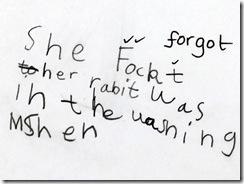 She Fockt forgot
to her rabit was
in the uashing
MShen